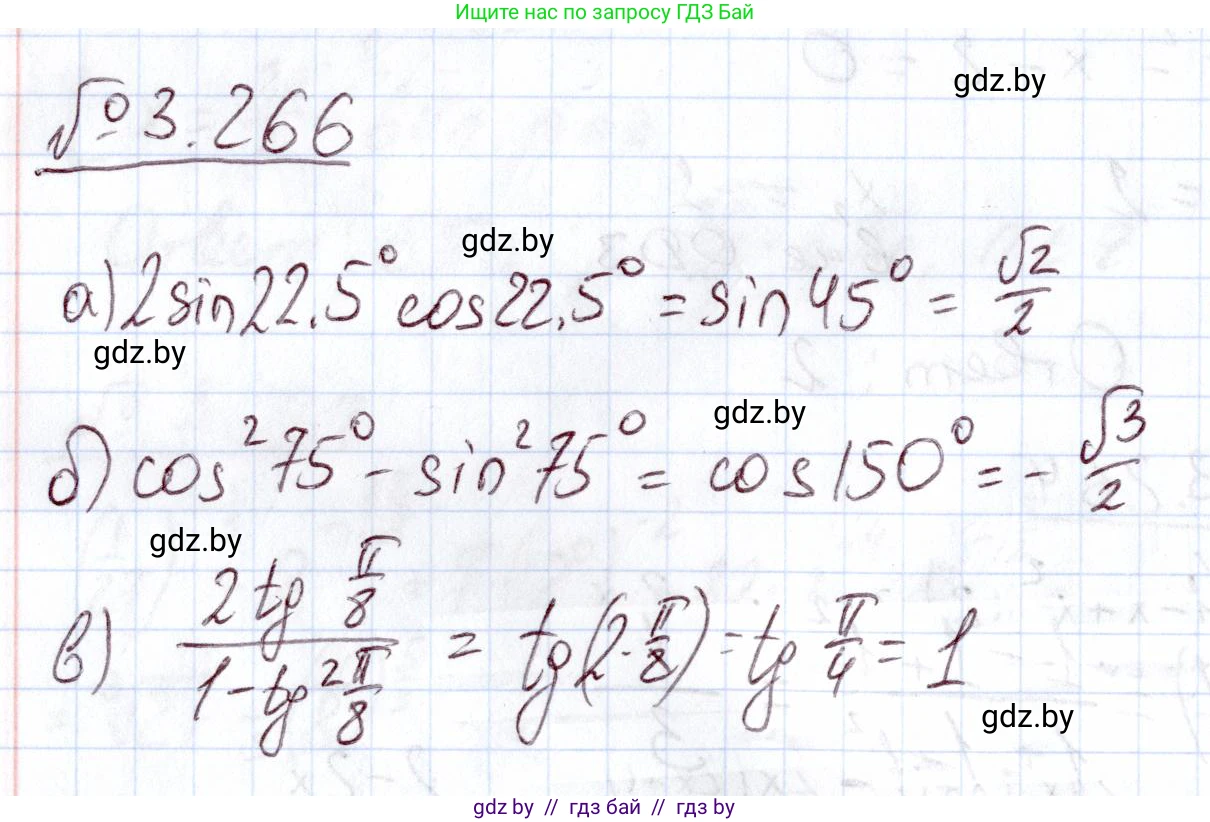 Ищите нас по запросу ГДЗ Бай
gdz.by
№ 3.266
gdz.by
а) 2 sin 22,5° cos 22,5° = sin 45° = √2/2
gdz.by
gdz.by
б) cos² 75° - sin² 75° = cos 150° = - √3/2
gdz.by
в) (2 tg π/8)/(1 - tg² π/8) = tg(2·π/8) = tg π/4 = 1
gdz.by
gdz.by // гдз бай // гдз by